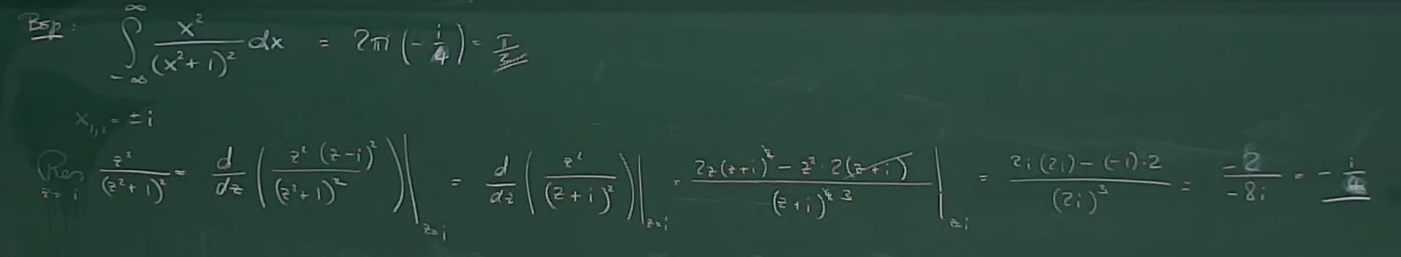 Bsp: ∫_{-∞}^{∞} x²/(x²+1)² dx = 2πi (-i/4) = π/2
x_{1,2} = ±i
Res_{z=i} z²/(z²+1)² = d/dz ( z²(z-i)²/(z²+1)² ) |_{z=i} = d/dz ( z²/(z+i)² ) |_{z=i} = 2z(z+i)² - z²·2(z+i) / (z+i)^{4 3} |_{z=i} = 2i(2i) - (-1)·2 / (2i)³ = -2/-8i = -i/4